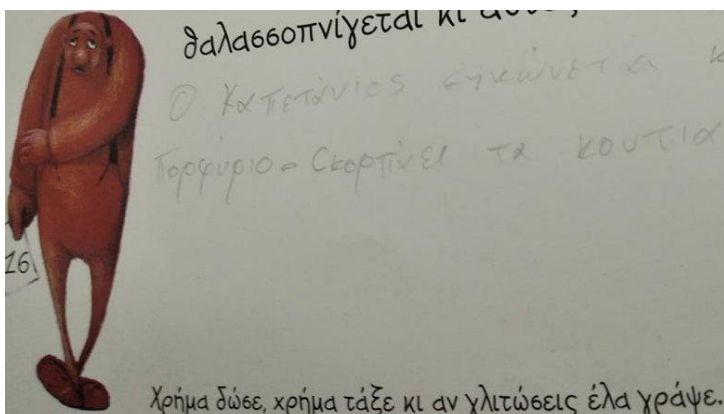 θαλασσοπνίγεται κι
Ο Καπετάνιος σηκώνεται κ
Πορφύριο. Σκορπίνει τα κουτιά
16
Χρήμα δώσε, χρήμα τάξε κι αν γλιτώσεις έλα γράψε.